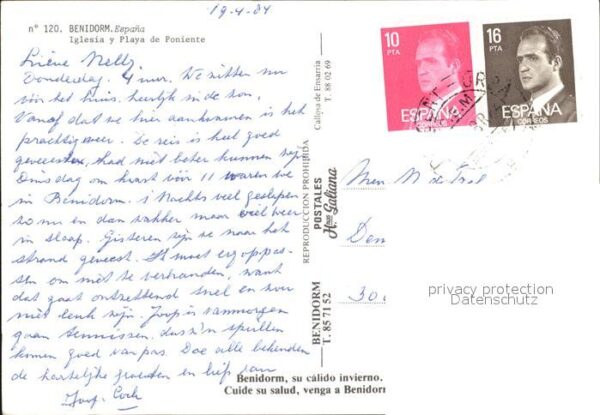 19-4-84
nº 120. BENIDORM. España
Iglesia y Playa de Poniente
Lieve Nelly,
Donderdag, 4 uur. We zitten nu
vóór het huis heerlijk in de zon.
Vanaf dat we hier aankwamen is het
prachtig weer. De reis is heel goed
geweest, had niet beter kunnen zijn
Dinsdag om kwart vóór 11 waren we
in Benidorm. 's Nachts veel geslapen
zo nu en dan wakker maar wel weer
in slaap. Gisteren zijn we naar het
strand geweest. Ik moet erg oppas-
sen om niet te verbranden, want
dat gaat ontzettend snel en zou
niet leuk zijn. Joop is vanmorgen
gaan tennissen, dus z'n spullen
komen goed van pas. Doe alle bekenden
de hartelijke groeten en liefs van
Joop - Cock
Calloya de Ensarria
T. 88 02 69
REPRODUCCION PROHIBIDA
POSTALES
Hnos Galiana
BENIDORM
T. 85 71 52
10
PTA
ESPAÑA
CORREOS
16
PTA
ESPAÑA
CORREOS
30
privacy protection
Datenschutz
Benidorm, su cálido invierno.
Cuide su salud, venga a Benidorm